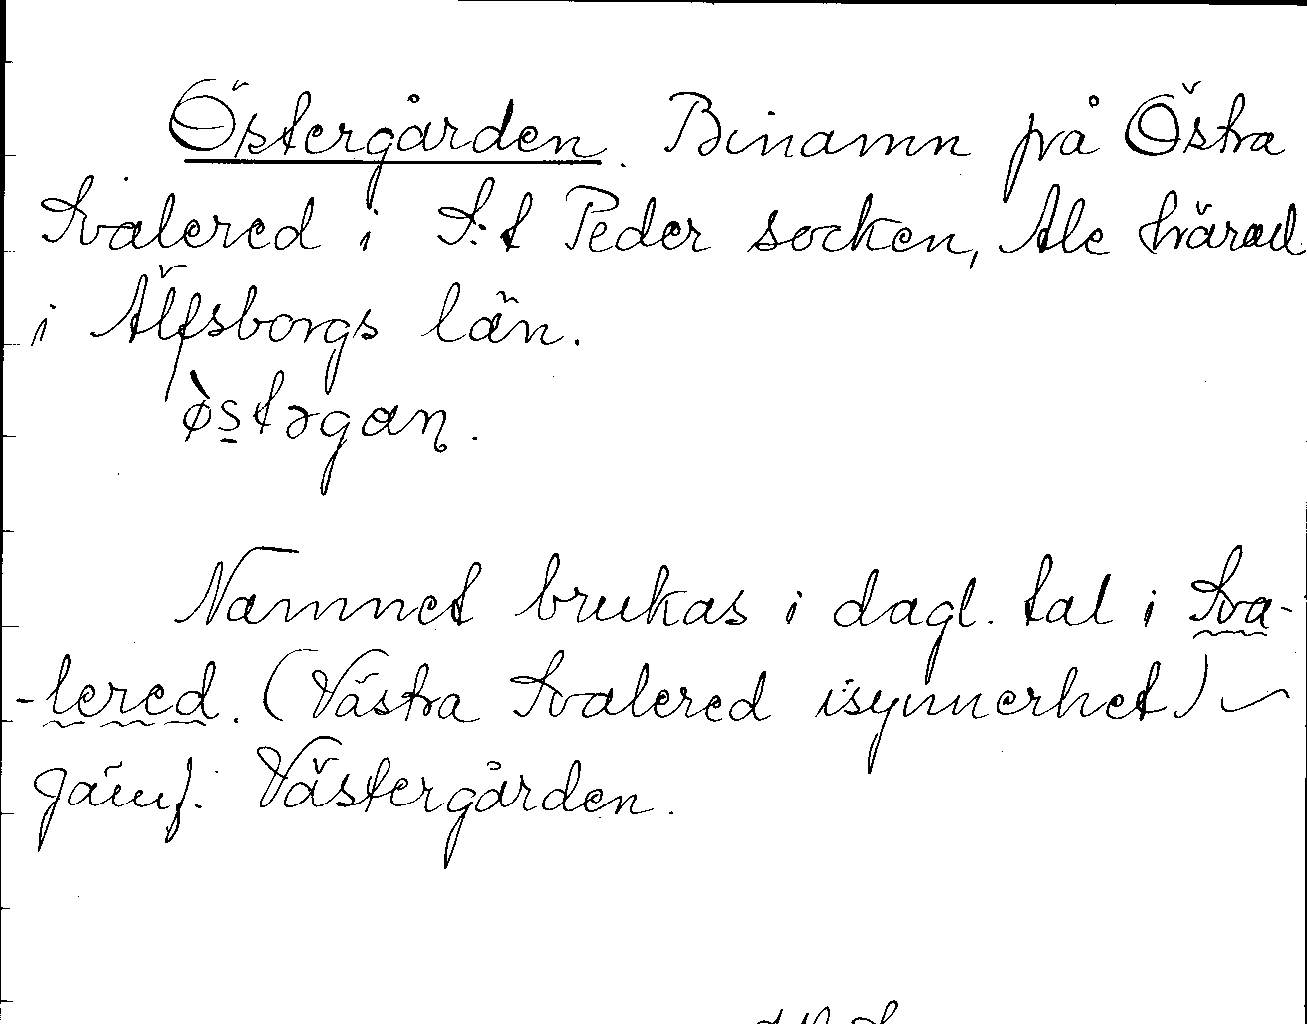 Östergården. Binamn på Östra
Svalered i S:t Peder socken, Ale härad
i Älfsborgs län.
ø̀s̠təgaɳ.
Namnet brukas i dagl. tal i Sva-
-lered. (Västra Svalered isynnerhet)
Jämf. Västergården.